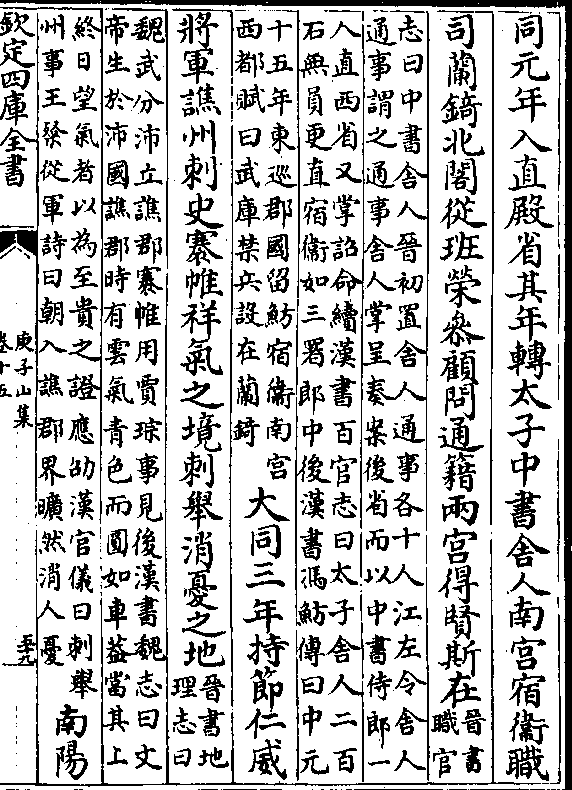 同元年入直殿省其年轉太子中書舍人南宫宿衞職
司蘭錡北閣從班榮叅顧問通籍兩宫得賢斯在晉書職官
志曰中書舍人晉初置舍人通事各十人江左令舍人
通事謂之通事舍人掌呈奏案後省而以中書侍郎一
人直西省又掌詔命續漢書百官志曰太子舍人二百
石無員更直宿衞如三署郎中後漢書馮魴傳曰中元
十五年東巡郡國留魴宿衞南宫
西都賦曰武庫禁兵設在蘭錡
大同三年持節仁威
將軍譙州刺史褰帷祥氣之境刺舉消憂之地晉書地理志曰
魏武分沛立譙郡褰帷用賈琮事見後漢書魏志曰文
帝生於沛國譙郡時有雲氣青色而圓如車葢當其上
終日望氣者以為至貴之證應劭漢官儀曰刺舉
州事王粲從軍詩曰朝入譙郡界曠然消人憂
南陽
欽定四庫全書
庾子山集
卷十五
五十九